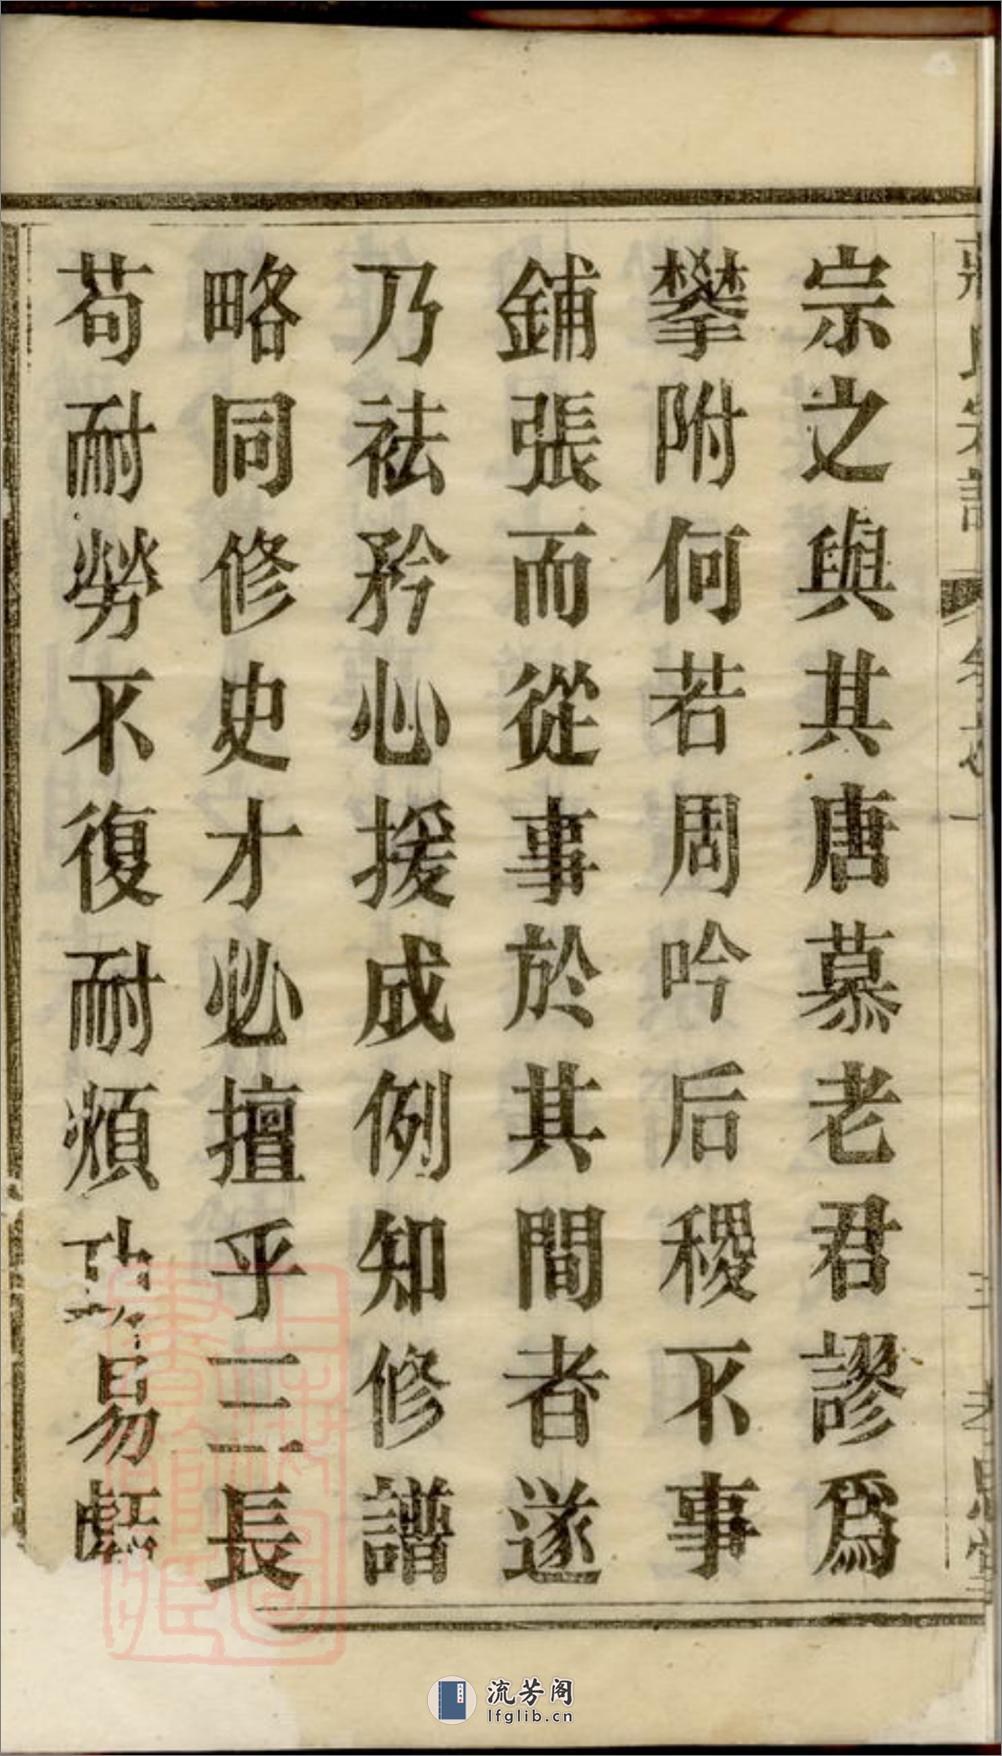 宗之與其唐慕老君謬爲
攀附何若周吟后稷不事
鋪張而從事於其間者遂
乃祛矜心援成例知修譜
略同修史才必擅乎三長
苟耐勞不復耐煩 易
流芳阁
lfglib.cn